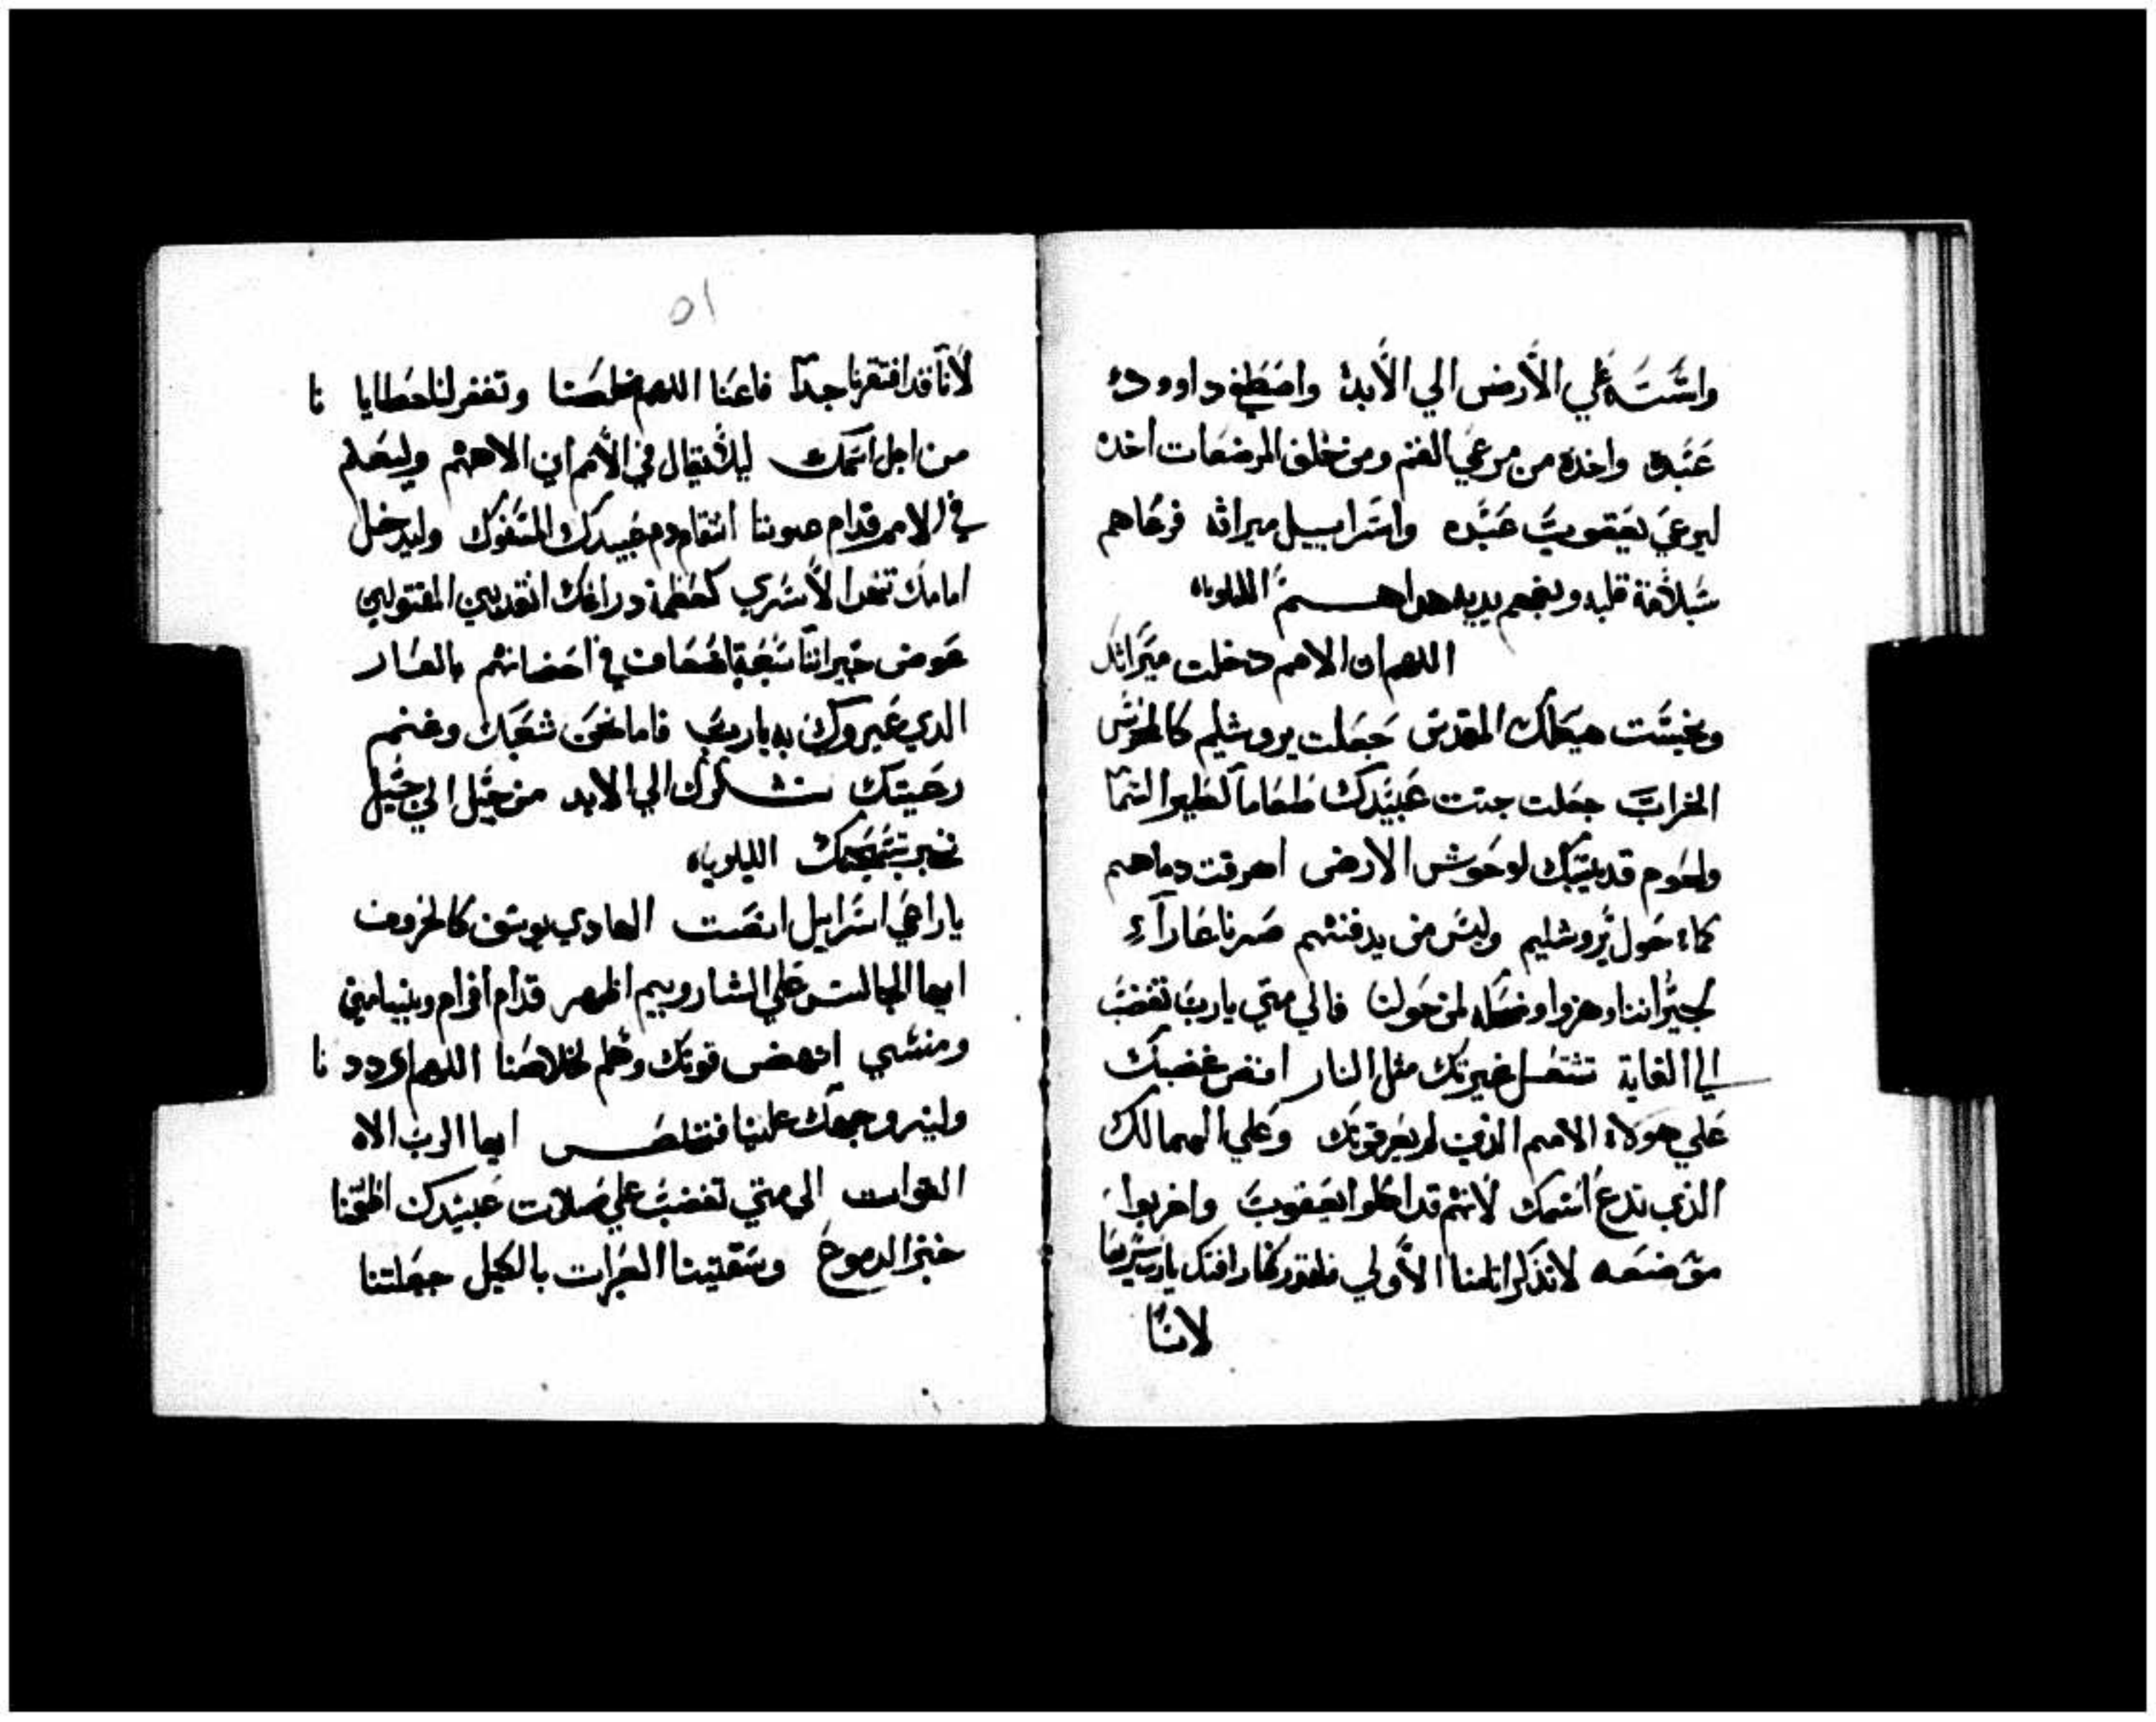 واسسه علي الأرض الي الأبد واصطفي داوود
عبده واخده من مرعي الغنم ومن خلف المرضعات اخده
ليرعي يعقوب عبده واسراييل ميراثه فرعاهم
بدعة قلبه وبفهم يديه هداهم الليلوياه
اللهم ان الامم دخلت ميراثك
ونجست هيكلك المقدس جعلت يروشليم كالحرس
الخراب جعلت جتت عبيدك طعاما لطيور السما
ولحوم قديسيك لوحوش الارض اهرقت دماهم
كماء حول يروشليم وليس من يدفنهم صرنا عارآء
لجيراننا وهزوا وضحكه لمن حولنا فالي متي يارب تغضب
الي الغاية تشتعل غيرتك مثل النار افض غضبك
علي هولاء الامم الذين لم يعرفونك وعلي الممالك
الذي تدع اسمك لانهم قد اكلوا يعقوب واخربوا
موضعه لاتذكر اثامنا الأولي فلتدركنا رافتك يارب سريعا
لاننا
٥١
لأننا قد افتقرنا جدا فاعنا اللهم مخلصنا وتغفر لنا خطايا نا
من اجل اسمك ليلا يقال في الأمم اين الاههم وليعلم
في الامم قدام عيوننا انتقام دم عبيدك المسفوك وليدخل
امامك تنهد الأسري كعظمة دراعك انقد بني المقتولين
عوض جيراننا سبعة اضعاف في احضانهم بالعار
الدي عيروك به يارب فاما نحن شعبك وغنم
رعيتك نشكرك الي الابد من جيل الي جيل
نخبر بتسبحتك الليلوياه
ياراعي اسراييل انصت الهادي يوسف كالخروف
ايها الجالس علي الشاروبيم اظهر قدام افرام وبنيامين
ومنسي انهض قوتك وهلم لخلاصنا اللهم اردد نا
ولينر وجهك علينا فنخلص ايها الرب الاه
القوات الي متي تغضب علي صلات عبيدك اطعمتنا
خبز الدموع وسقيتنا العبرات بالكيل جعلتنا